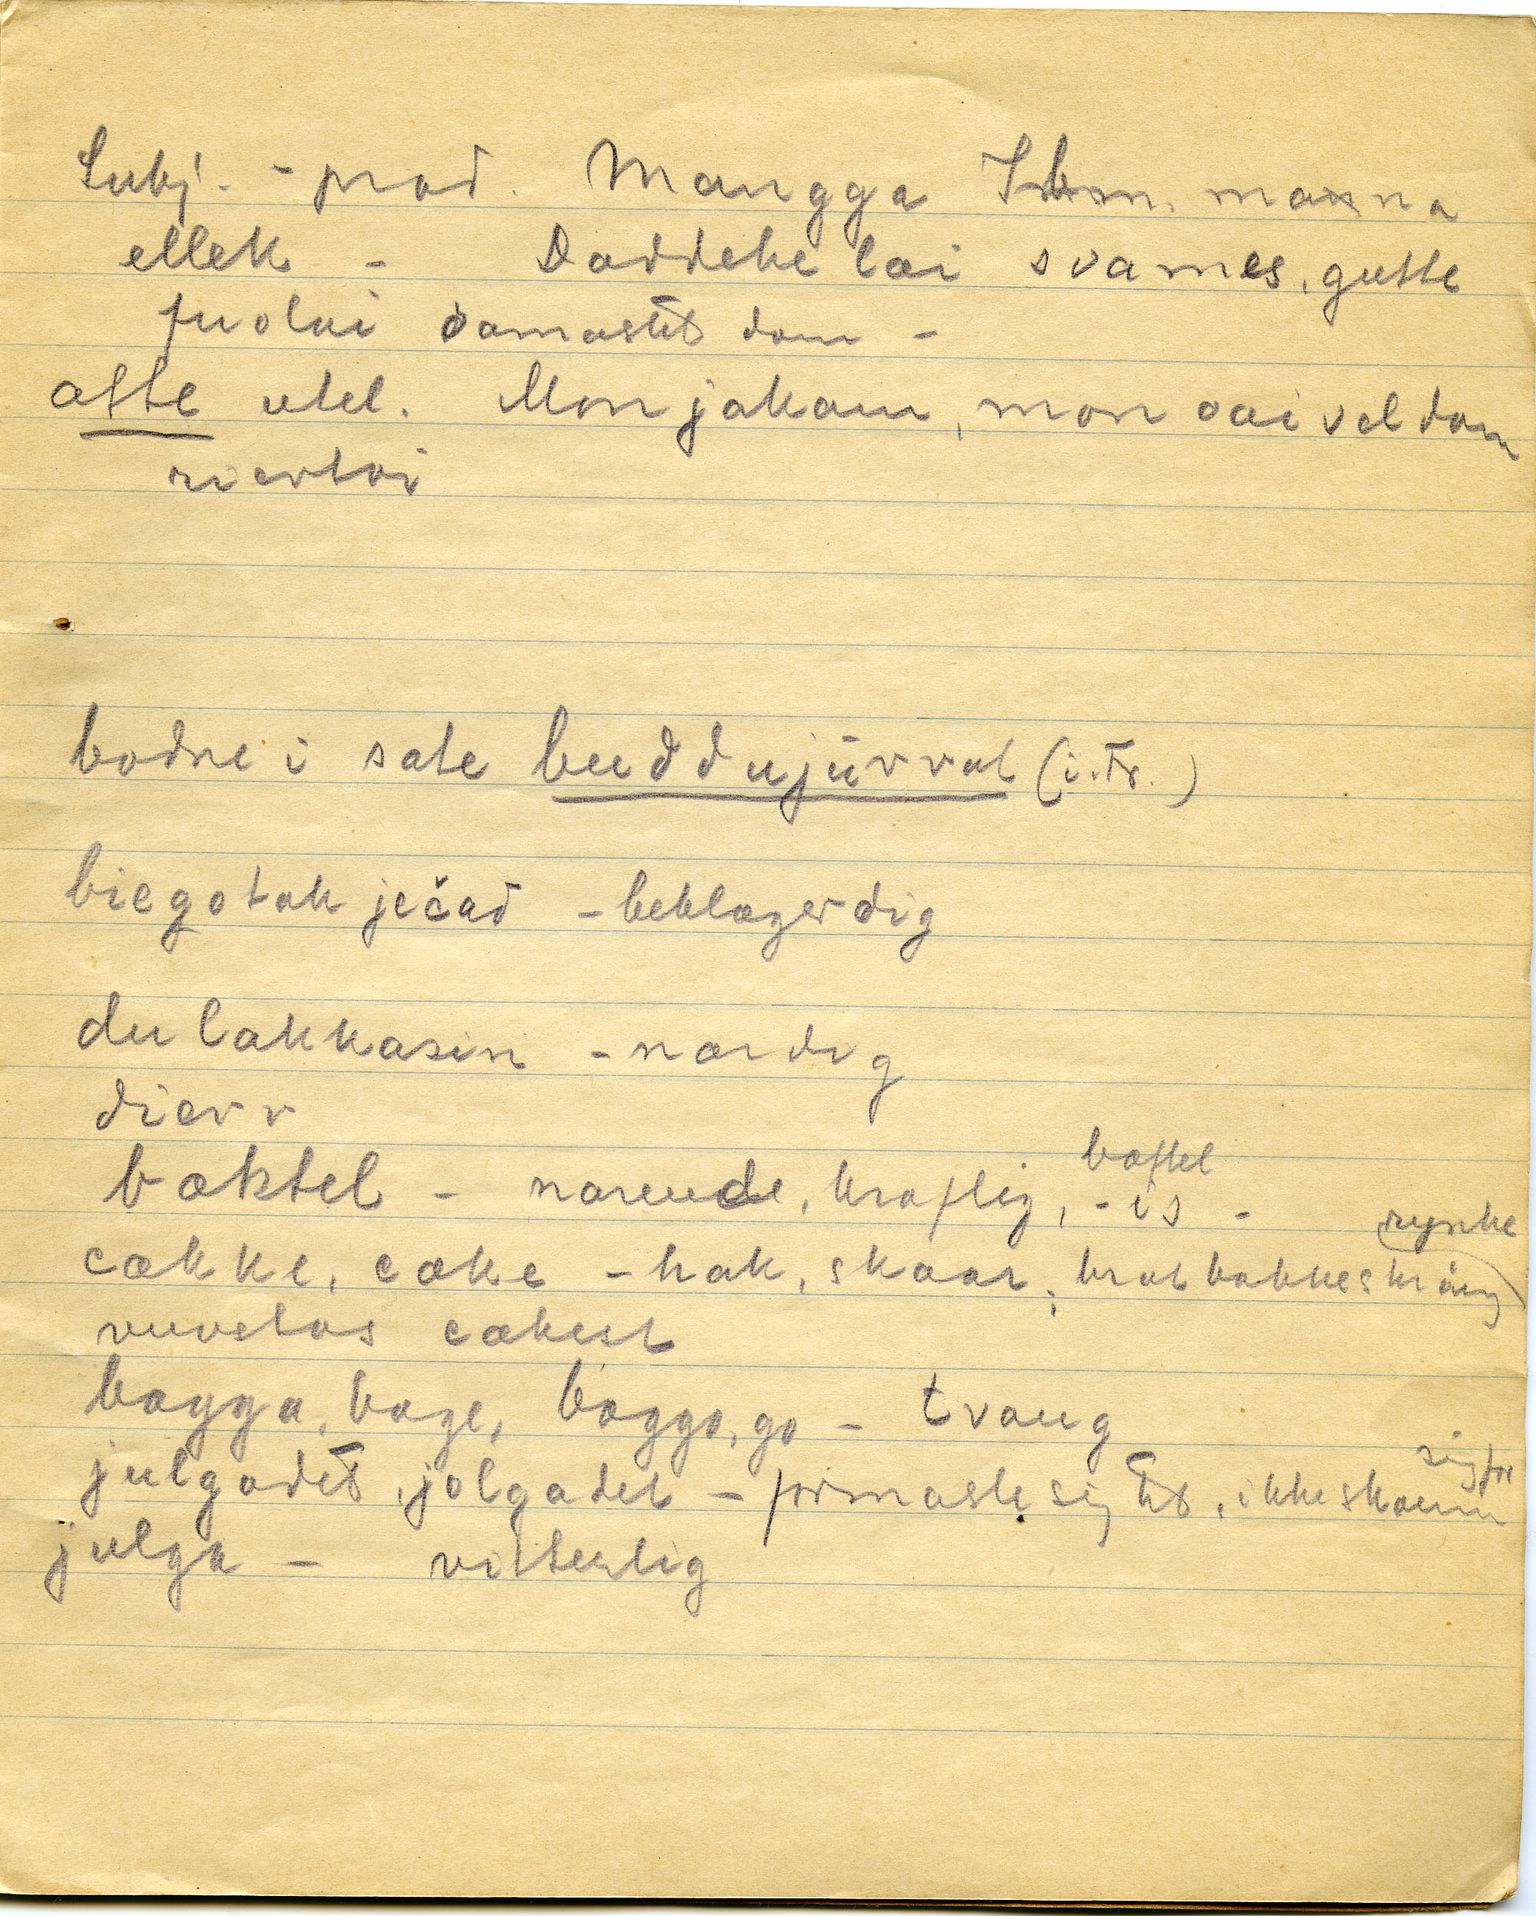 Subj. - præd. Mangga Ibm. manna
ellek - Daddeke læi svames, gutte
fuolai damastet dam -
atte utel. Mon jakam, mon oaiveldam
riertai
bodne i sate buddujuvvut (i. Tr.)
biegotak ječad - beklager dig
du lakkasin - nær dig
dievv
bæktel - nærende, kraftig, bæftel - is -
cække, cæke - hak, skaar, brat bakkeskrång rynke
vuvetas cækest
bagga, bage, baggo, go - tvang
julgadet, jolgadet - formaste sig til, ikke skamme sig for
julga - vitterlig